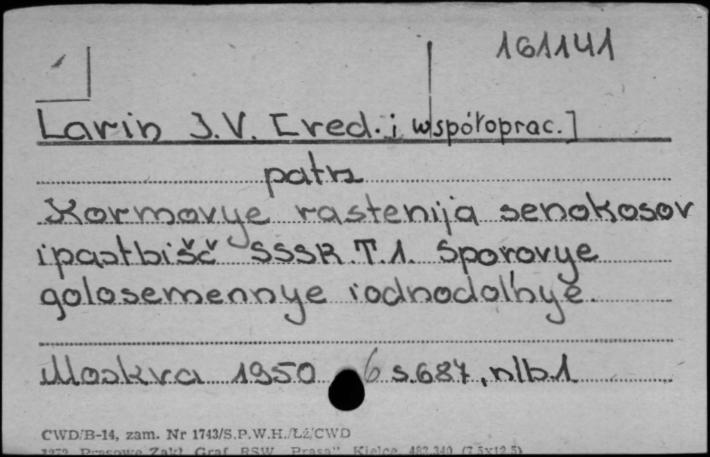 161141
Larin J.V. [red. i współoprac.]
patrz
Kormovye rastenija senokosov
i pastbišč SSSR. T.1. Sporovye
golosemennye i odnodol'nye.
Moskva 1950 6 s.687, nlb.1
CWD/B-14, zam. Nr 1743/S.P.W.H./Łź/CWD
Prasowe Zakł. Graf. RSW „Prasa” Kielce